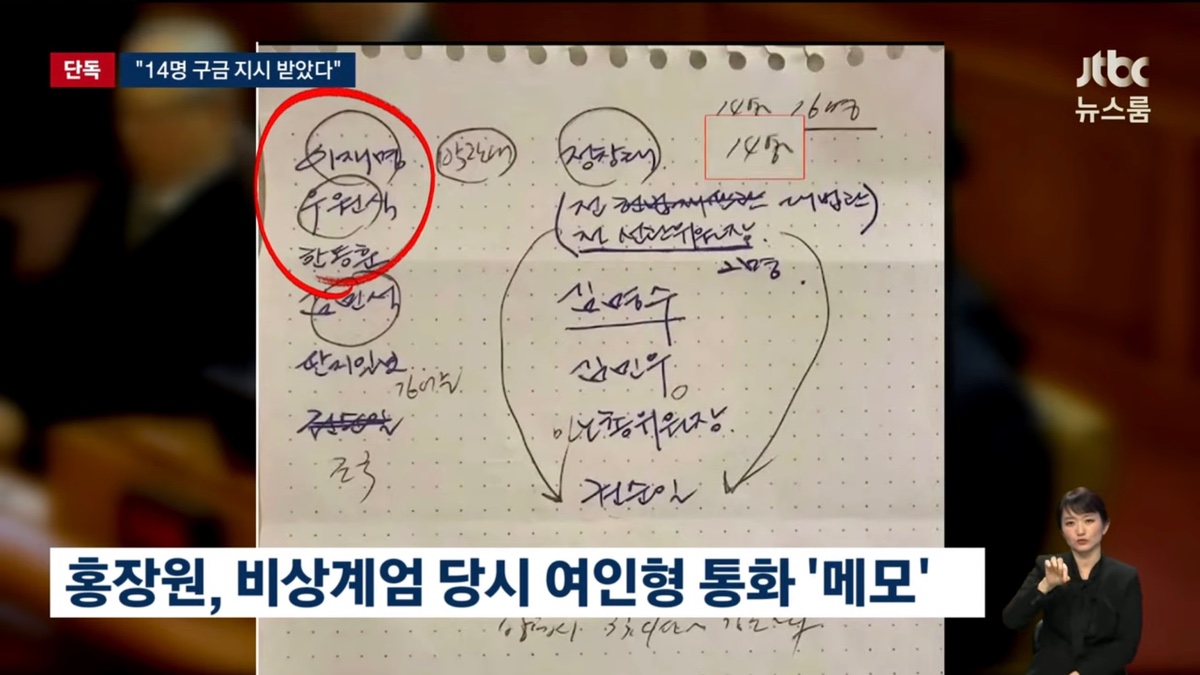 단독 "14명 구금 지시 받았다"
jtbc
뉴스룸
14명 16명
14명
이재명
우원식
한동훈
김민석
딴지일보
김어준
조국
정창래
(전 대법관)
전 선관위원장.
김명수
김민우
위원장.
권순일
홍장원, 비상계엄 당시 여인형 통화 '메모'